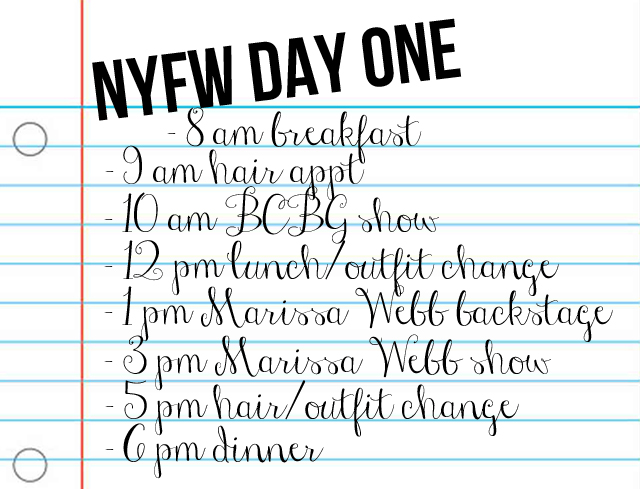 NYFW DAY ONE
- 8 am breakfast
- 9 am hair appt
- 10 am BCBG show
- 12 pm lunch/outfit change
- 1 pm Marissa Webb backstage
- 3 pm Marissa Webb show
- 5 pm hair/outfit change
- 6 pm dinner